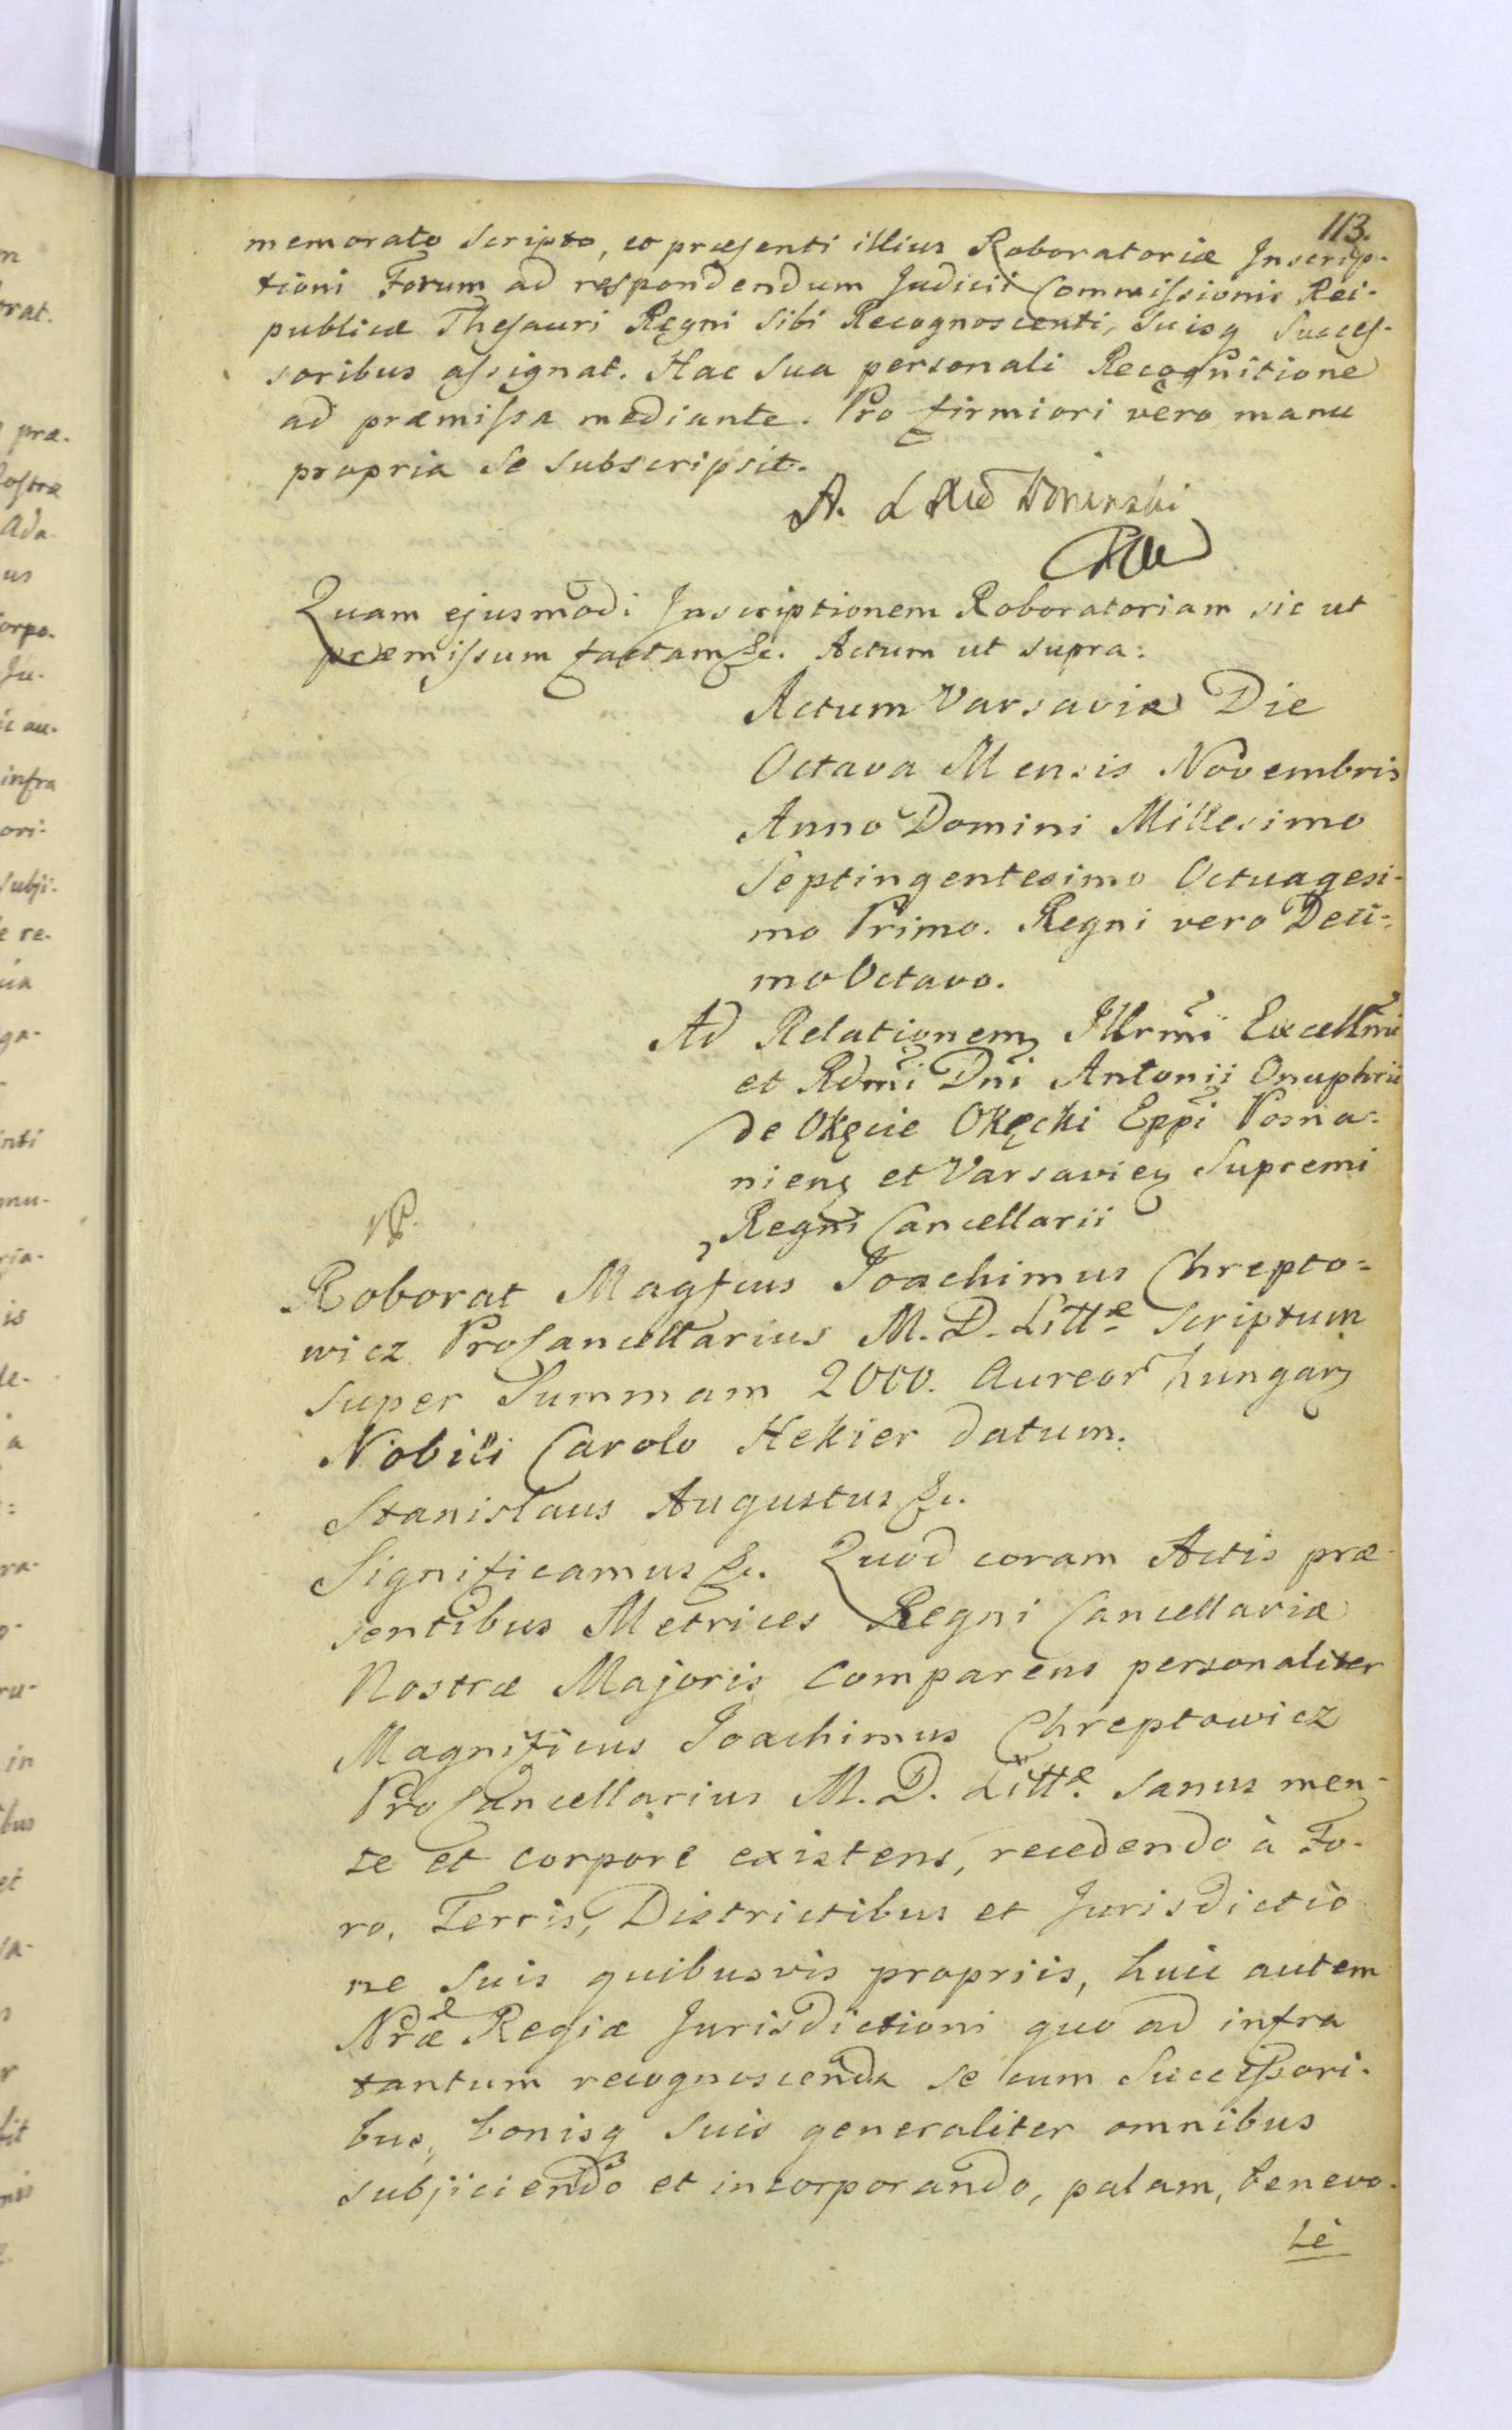 113.
memorato Scripto, eo præsenti illius Roboratoriæ Inscrip-
tioni Forum ad respondendum Judicii Commissionis Rei-
publicæ Thesauri Regni Sibi Recognoscenti, Suisq Succes-
soribus assignat. Hac Sua personali Recognitione
ad præmissa mediante. Pro firmiori vero manu
propria Se Subscripsit.
A.
Quam ejusmodi Inscriptionem Roboratoriam sic ut
præmissum factam &c. Actum ut supra.
Actum Varsaviæ Die
Octava Mensis Novembris
Anno Domini Millesimo
Septingentesimo Octuagesi-
mo Primo. Regni vero Deci-
mo Octavo.
Ad Relationem Illrmi Excellmi
et Rdmi Dni Antonii Onuphrii
de Okęcie Okęcki Eppi Posna-
niens et Varsavien Supremi
Regni Cancellarii
Roborat Magfcus Joachimus Chrepto-
wicz ProCancellarius M. D. Littæ Scriptum
super Summam 2000. Aureor hungar
Nobili Carolo Hekier datum.
Stanislaus Augustus &c.
Significamus &c. Quod coram Actis præ-
sentibus Metrices Regni Cancellariæ
Nostræ Majoris Comparens personaliter
Magnificus Joachimus Chreptowicz
ProCancellarius M. D. Littæ. Sanus men-
te et corpore existens, recedendo à Fo-
ro, Terris, Districtibus et Jurisdictio
ne Suis quibusvis propriis, huic autem
Nræ Regiæ Jurisdictioni quo ad infra
tantum recognoscenda se cum Successori-
bus, bonisq Suis generaliter omnibus
subjiciendo et incorporando, palam, benevo-
lè